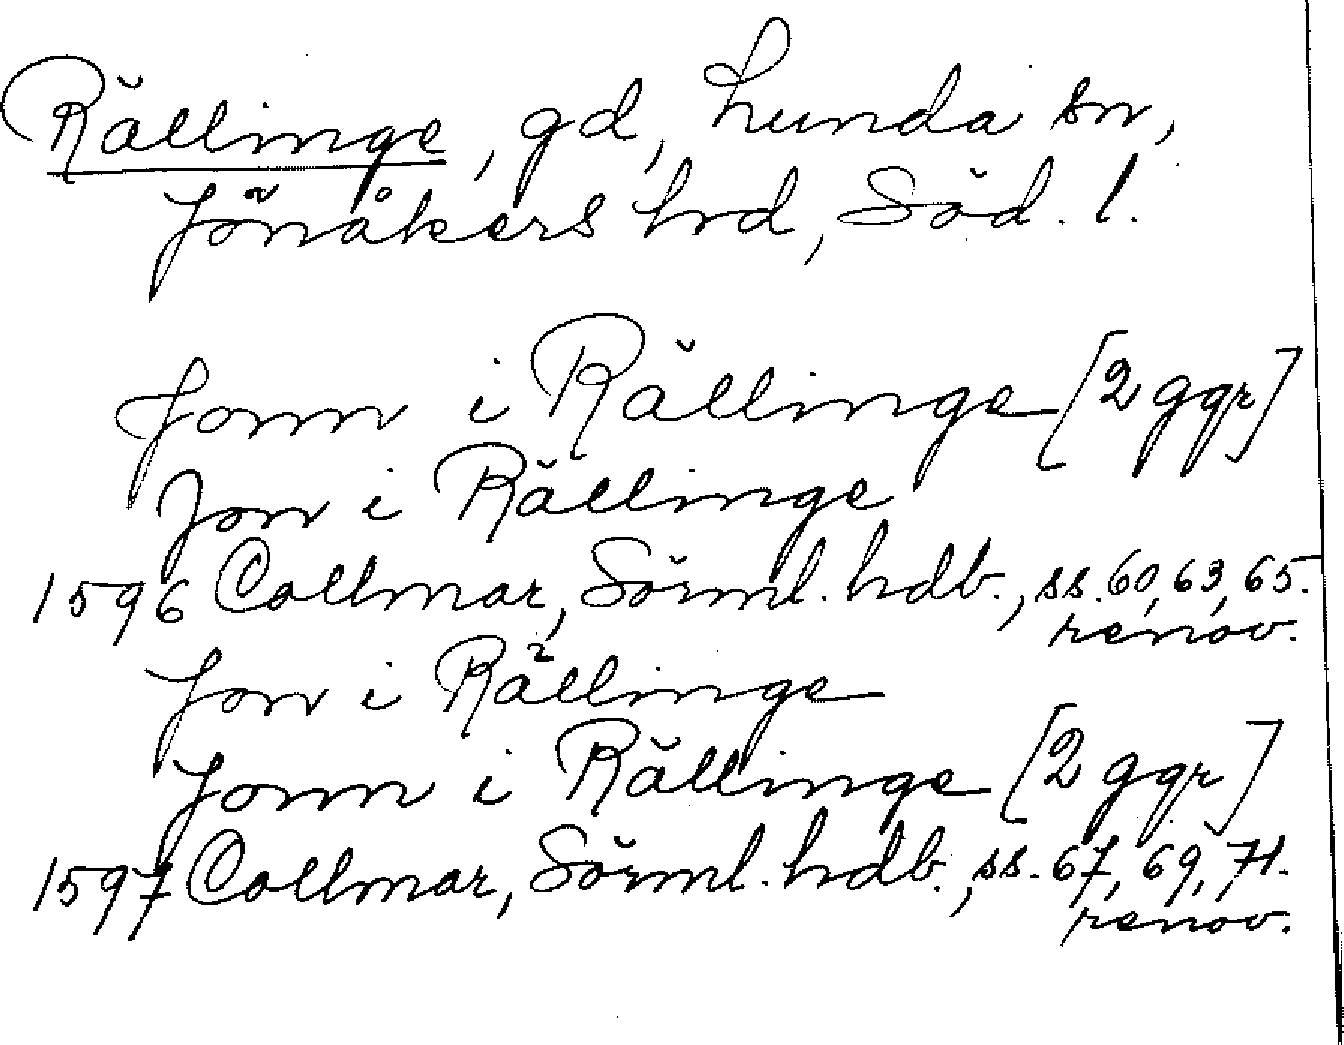 Rällinge, gd, Lunda sn,
Jönåkers hd, Söd. l.
Jonn i Rällinge [2 ggr]
Jon i Rällinge
1596 Collmar, Sörml. hdb., ss. 60, 63, 65.
renov.
Jon i Rällinge
Jonn i Rällinge [2 ggr]
1597 Collmar, Sörml. hdb., ss. 67, 69, 71.
renov.